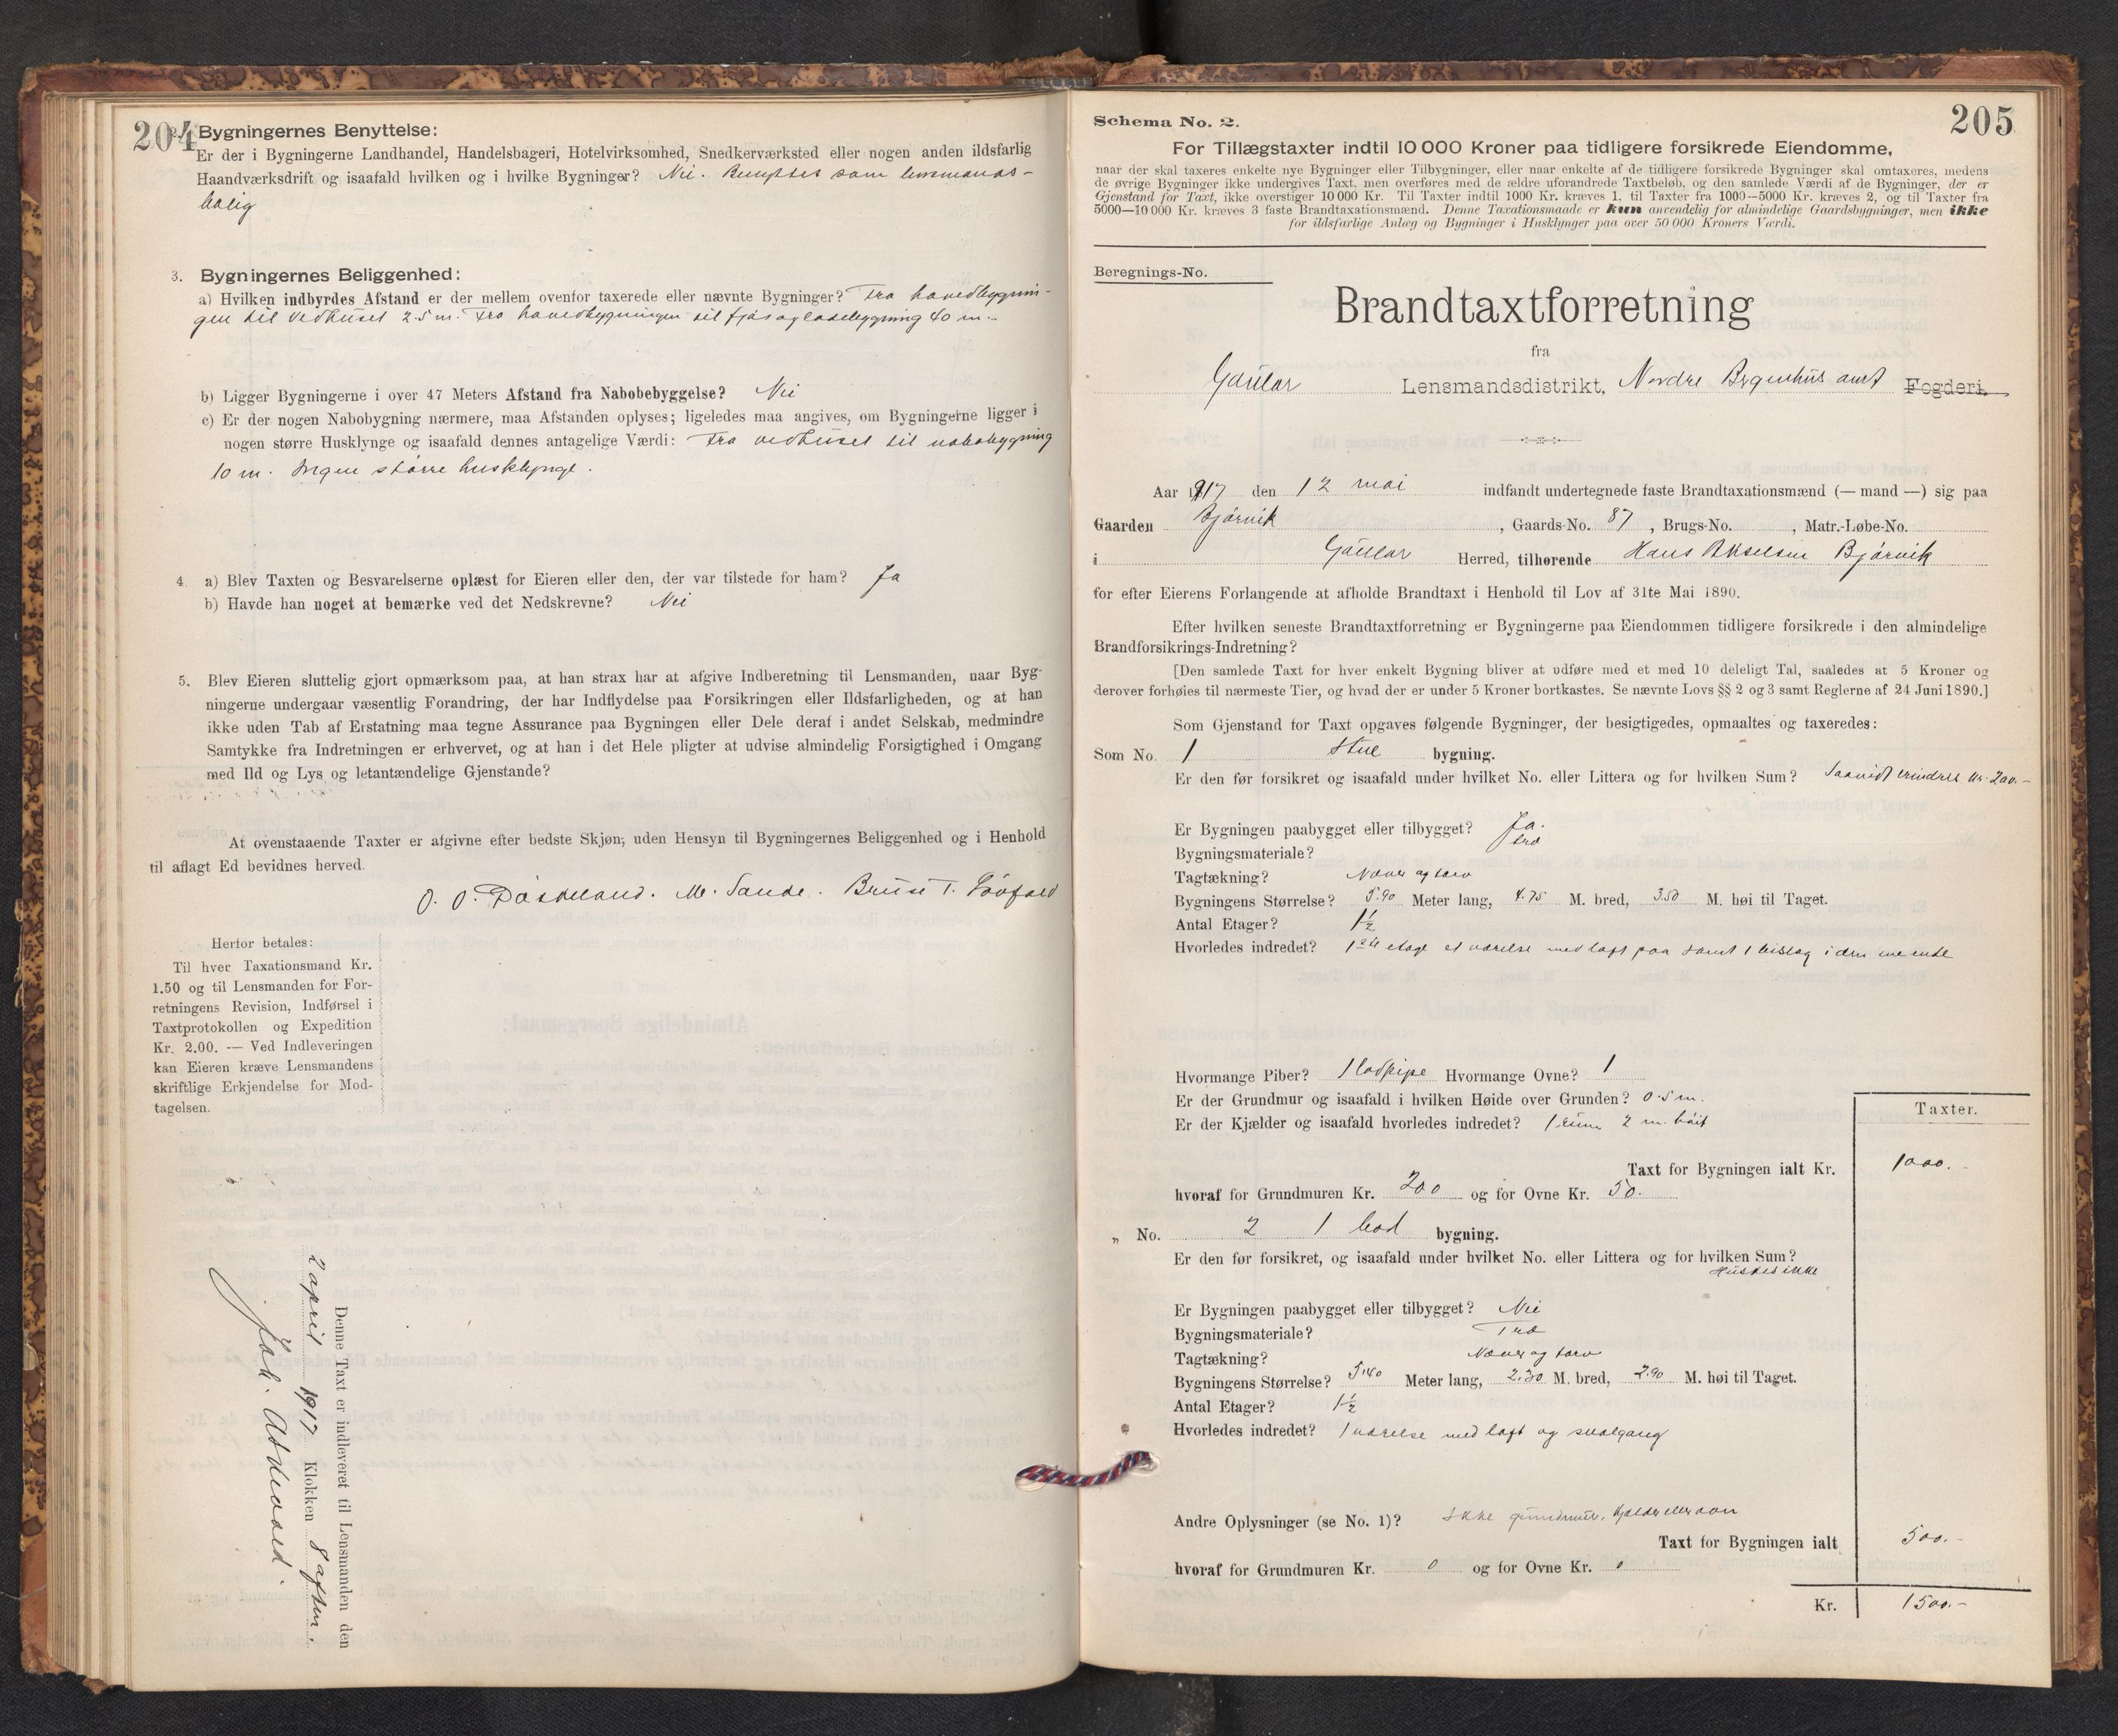 204
2. Bygningernes Benyttelse:
Er der i Bygningerne Landhandel, Handelsbageri, Hotelvirksomhed, Snedkerværksted eller nogen anden ildsfarlig
Haandværksdrift og isaafald hvilken og i hvilke Bygninger? Nei. Benyttes som lensmands-
bolig
3. Bygningernes Beliggenhed:
a) Hvilken indbyrdes Afstand er der mellem ovenfor taxerede eller nævnte Bygninger? Fra hovedbygnin-
gen til vedhuset 2.5 m. Fra hovedbygningen til fjøs og ladebygning 40 m.
b) Ligger Bygningerne i over 47 Meters Afstand fra Nabobebyggelse? Nei
c) Er der nogen Nabobygning nærmere, maa Afstanden oplyses; ligeledes maa angives, om Bygningerne ligger i
nogen større Husklynge og isaafald dennes antagelige Værdi: Fra vedhuset til nabobygning
10 m. Ingen större husklynge.
4. a) Blev Taxten og Besvarelserne oplæst for Eieren eller den, der var tilstede for ham? Ja
b) Havde han noget at bemærke ved det Nedskrevne? Nei
5. Blev Eieren sluttelig gjort opmærksom paa, at han strax har at afgive Indberetning til Lensmanden, naar Byg-
ningerne undergaar væsentlig Forandring, der har Indflydelse paa Forsikringen eller Ildsfarligheden, og at han
ikke uden Tab af Erstatning maa tegne Assurance paa Bygningen eller Dele deraf i andet Selskab, medmindre
Samtykke fra Indretningen er erhvervet, og at han i det Hele pligter at udvise almindelig Forsigtighed i Omgang
med Ild og Lys og letantændelige Gjenstande?
At ovenstaaende Taxter er afgivne efter bedste Skjøn, uden Hensyn til Bygningernes Beliggenhed og i Henhold
til aflagt Ed bevidnes herved.
O. O. M. Sande. T.
Herfor betales:
Til hver Taxationsmand Kr.
1.50 og til Lensmanden for For-
retningens Revision, Indførsel i
Taxtprotokollen og Expedition
Kr. 2.00. — Ved Indleveringen
kan Eieren kræve Lensmandens
skriftlige Erkjendelse for Mod-
tagelsen.
Denne Taxt er indleveret til Lensmanden den
2 april 1917 Klokken 8 aften.
Joh.
205
Schema No. 2.
For Tillægstaxter indtil 10 000 Kroner paa tidligere forsikrede Eiendomme,
naar der skal taxeres enkelte nye Bygninger eller Tilbygninger, eller naar enkelte af de tidligere forsikrede Bygninger skal omtaxeres, medens
de øvrige Bygninger ikke undergives Taxt, men overføres med de ældre uforandrede Taxtbeløb, og den samlede Værdi af de Bygninger, der er
Gjenstand for Taxt, ikke overstiger 10 000 Kr. Til Taxter indtil 1000 Kr. kræves 1, til Taxter fra 1000—5000 Kr. kræves 2, og til Taxter fra
5000—10 000 Kr. kræves 3 faste Brandtaxationsmænd. Denne Taxationsmaade er kun anvendelig for almindelige Gaardsbygninger, men ikke
for ildsfarlige Anlæg og Bygninger i Husklynger paa over 50 000 Kroners Værdi.
Beregnings-No.
Brandtaxtforretning
fra
Gaular Lensmandsdistrikt, Nordre Bergenhus amt Fogderi.
Aar 1917 den 12 mai indfandt undertegnede faste Brandtaxationsmænd (— mand —) sig paa
Gaarden Bjørvik, Gaards-No. 87, Brugs-No. , Matr.-Løbe-No.
i Gaular Herred, tilhørende Hans Akselsen Bjørvik
for efter Eierens Forlangende at afholde Brandtaxt i Henhold til Lov af 31te Mai 1890.
Efter hvilken seneste Brandtaxtforretning er Bygningerne paa Eiendommen tidligere forsikrede i den almindelige
Brandforsikrings-Indretning?
[Den samlede Taxt for hver enkelt Bygning bliver at udføre med et med 10 deleligt Tal, saaledes at 5 Kroner og
derover forhøies til nærmeste Tier, og hvad der er under 5 Kroner bortkastes. Se nævnte Lovs §§ 2 og 3 samt Reglerne af 24 Juni 1890.]
Som Gjenstand for Taxt opgaves følgende Bygninger, der besigtigedes, opmaaltes og taxeredes:
Som No. 1 Stue bygning.
Er den før forsikret og isaafald under hvilket No. eller Littera og for hvilken Sum? Saavidt erindres kr. 200.-
Er Bygningen paabygget eller tilbygget? Ja.
Bygningsmateriale? træ
Tagtækning? Næver og torv
Bygningens Størrelse? 5.90 Meter lang, 4.75 M. bred, 3.50 M. høi til Taget.
Antal Etager? 1½
Hvorledes indredet? 1ste etage et værelse med loft paa samt 1 bislag i den ene ende
Hvormange Piber? 1 Hvormange Ovne? 1
Er der Grundmur og isaafald i hvilken Høide over Grunden? 0.5 m.
Er der Kjælder og isaafald hvorledes indredet? 1 rum 2 m. høit
Taxter.
Taxt for Bygningen ialt Kr. 1000.-
hvoraf for Grundmuren Kr. 200 og for Ovne Kr. 50.
„ No. 2 1 bod bygning.
Er den før forsikret, og isaafald under hvilket No. eller Littera og for hvilken Sum?
Huskes ikke
Er Bygningen paabygget eller tilbygget? Nei
Bygningsmateriale? Træ
Tagtækning? Næver og torv
Bygningens Størrelse? 5.40 Meter lang, 2.30 M. bred, 2.90 M. høi til Taget.
Antal Etager? 1½
Hvorledes indredet? 1 værelse med loft og svalgang
Andre Oplysninger (se No. 1)? Ikke grundmur, kjelder eller ovn
Taxt for Bygningen ialt 500.-
hvoraf for Grundmuren Kr. 0 og for Ovne Kr. 0
Kr. 1500.-